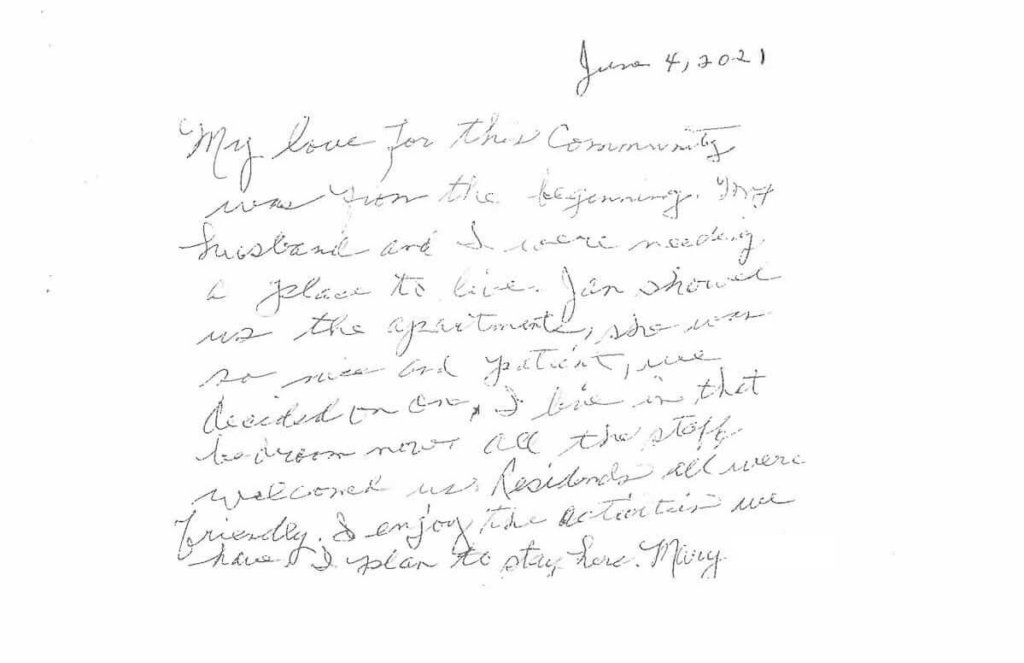 June 4, 2021
My love for this Community
was from the beginning. My
husband and I were needing
a place to live. Jan showed
us the apartments, she was
so nice and patient, we
decided on one, I live in that
bedroom now. all the staff
welcomed us. Residents all were
friendly. I enjoy the activities we
have. I plan to stay here. Mary